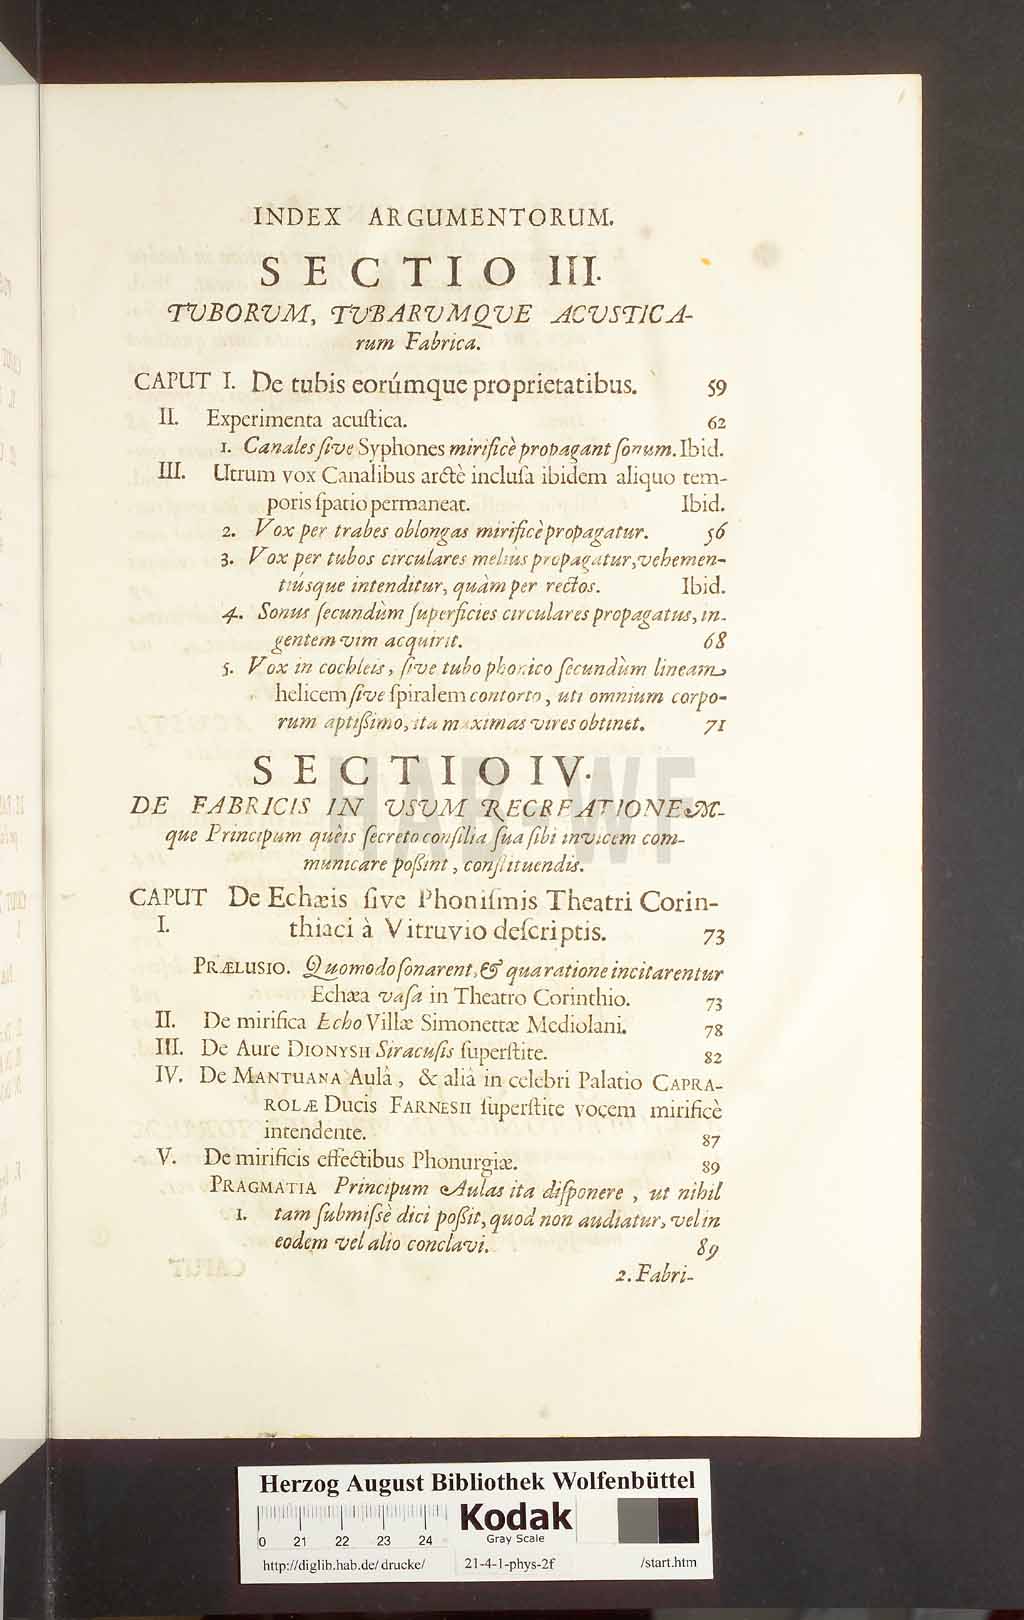 INDEX ARGUMENTORUM.
SECTIO III.
TVBORVM, TVBARVMQVE ACVSTICA-
rum Fabrica.
CAPUT I. De tubis eorúmque proprietatibus. 59
II. Experimenta acuſtica. 62
1. Canales ſive Syphones mirificè propagant ſonum. Ibid.
III. Utrum vox Canalibus arctè incluſa ibidem aliquo tem-
poris ſpatio permaneat. Ibid.
2. Vox per trabes oblongas mirificè propagatur. 56
3. Vox per tubos circulares meliùs propagatur, vehemen-
tiúsque intenditur, quàm per rectos. Ibid.
4. Sonus ſecundùm ſuperficies circulares propagatus, in-
gentem vim acquirit. 68
5. Vox in cochleis, ſive tubo phonico ſecundùm lineam
helicem ſive ſpiralem contorto, uti omnium corpo-
rum aptiſſimo, ita maximas vires obtinet. 71
SECTIO IV.
DE FABRICIS IN VSVM RECREATIONEM-
que Principum quèis ſecreto conſilia ſua ſibi invicem com-
municare poßint, conſtituendis.
CAPUT De Echæis ſive Phoniſmis Theatri Corin-
I. thiaci à Vitruvio deſcriptis. 73
PRÆLUSIO. Quomodo ſonarent, & qua ratione incitarentur
Echæa vaſa in Theatro Corinthio. 73
II. De mirifica Echo Villæ Simonettæ Mediolani. 78
III. De Aure DIONYSII Siracuſis ſuperſtite. 82
IV. De MANTUANA Aulâ, & aliâ in celebri Palatio CAPRA-
ROLÆ Ducis FARNESII ſuperſtite vocem mirificè
intendente. 87
V. De mirificis effectibus Phonurgiæ. 89
PRAGMATIA Principum Aulas ita diſponere, ut nihil
1. tam ſubmiſsè dici poßit, quod non audiatur, vel in
eodem vel alio conclavi. 89
2. Fabri-
HAB-WF
Herzog August Bibliothek Wolfenbüttel
Kodak
Gray Scale
0 21 22 23 24
http://diglib.hab.de/drucke/ 21-4-1-phys-2f /start.htm